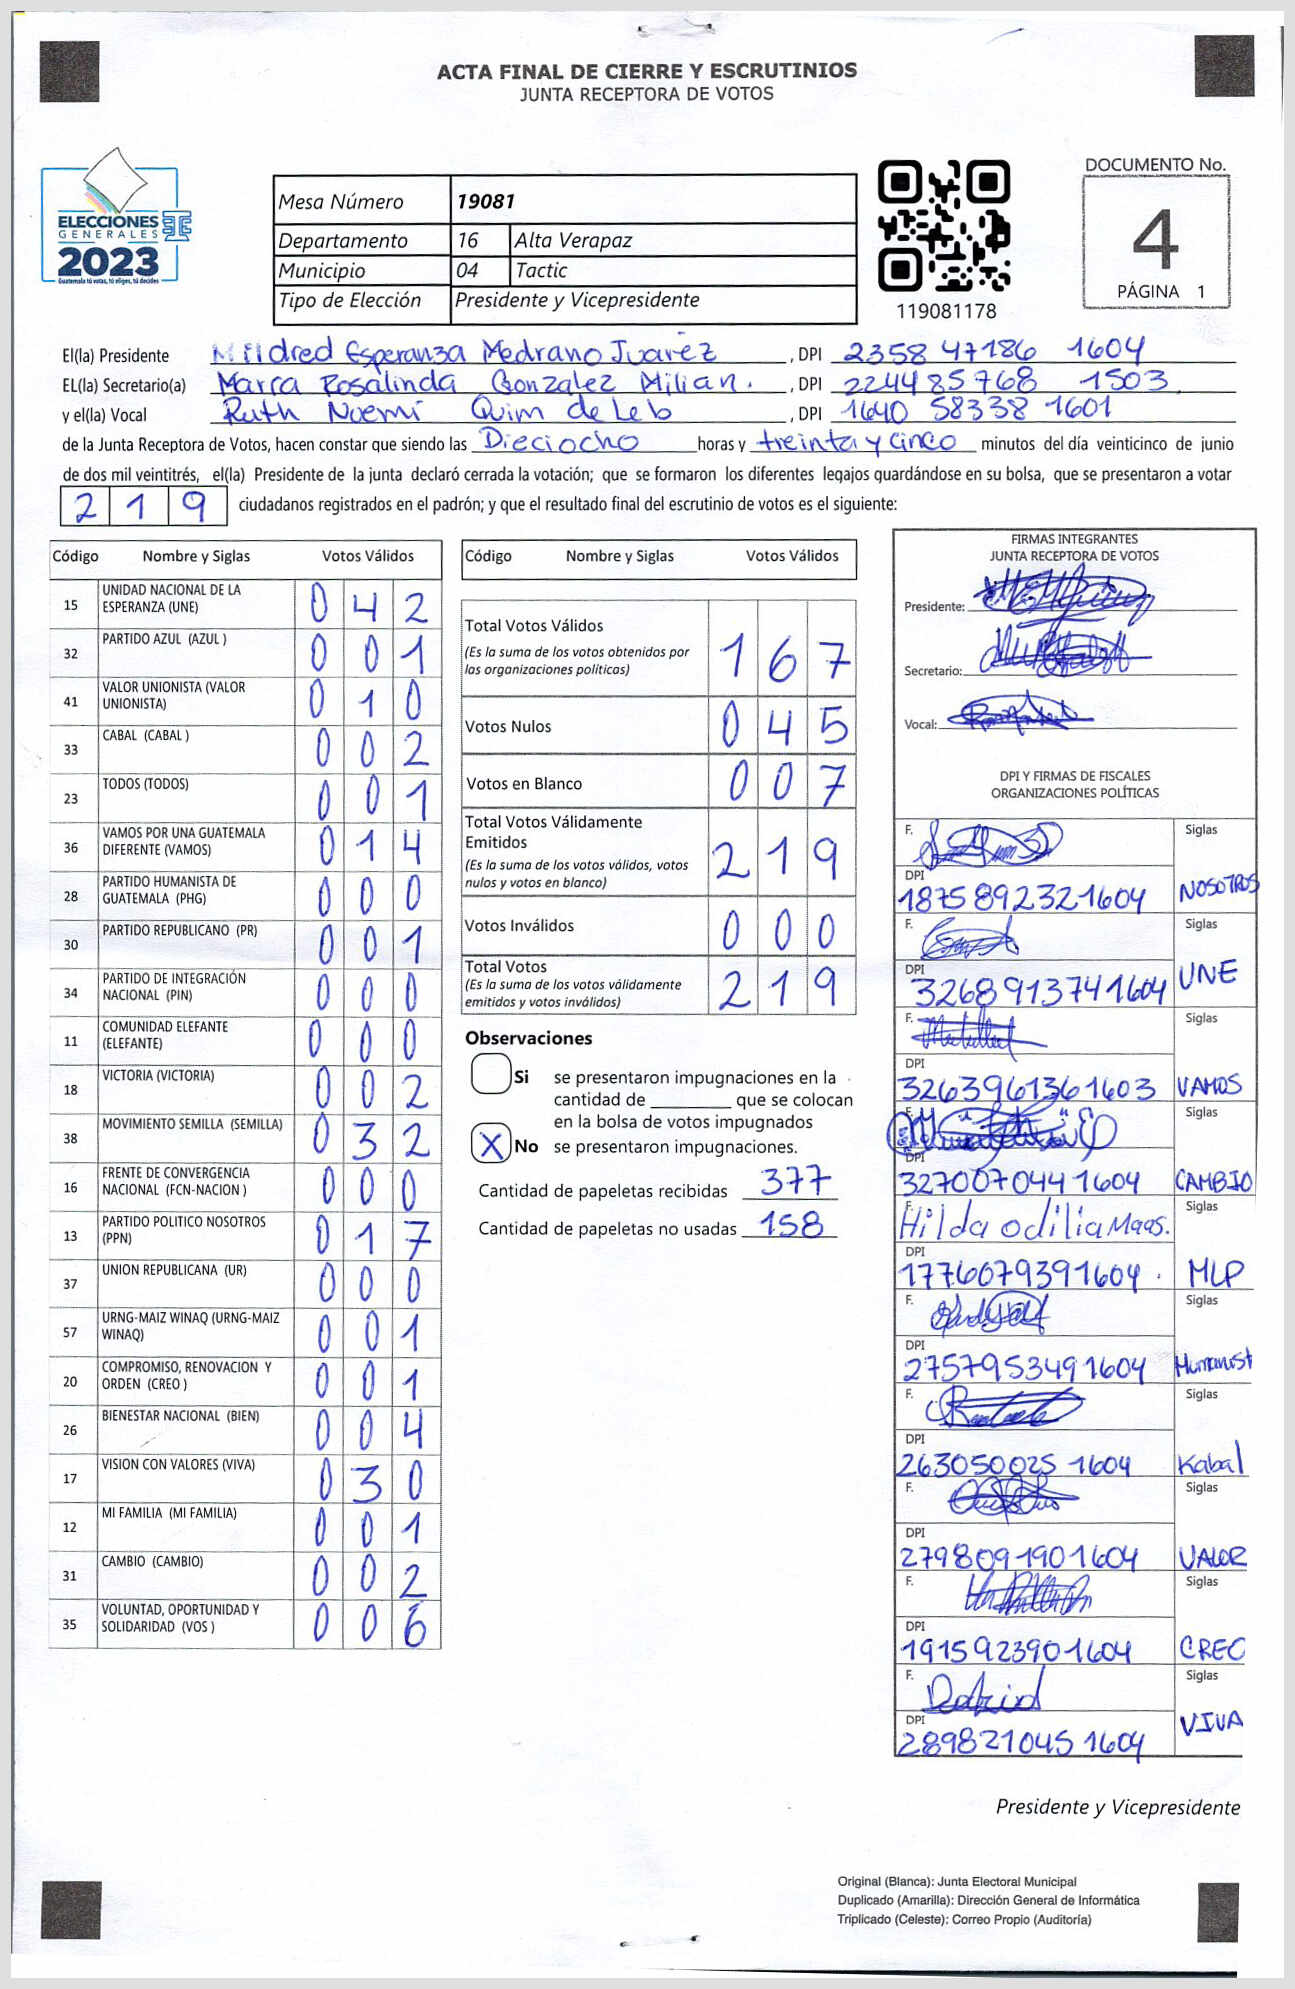 ACTA FINAL DE CIERRE Y ESCRUTINIOS
JUNTA RECEPTORA DE VOTOS
ELECCIONES
GENERALES
2023
Guatemala tú votas, tú eliges, tú decides
Mesa Número 19081
Departamento 16 Alta Verapaz
Municipio 04 Tactic
Tipo de Elección Presidente y Vicepresidente
119081178
DOCUMENTO No.
4
PÁGINA 1
El(la) Presidente Mildred Esperanza Medrano Juarez , DPI 2358 47186 1604
EL(la) Secretario(a) Marra Rosalinda Gonzalez Milian. , DPI 2244 85768 1503
y el(la) Vocal Ruth Noemi Quim de Leb , DPI 1640 58338 1601
de la Junta Receptora de Votos, hacen constar que siendo las Dieciocho horas y treinta y cinco minutos del día veinticinco de junio
de dos mil veintitrés, el(la) Presidente de la junta declaró cerrada la votación; que se formaron los diferentes legajos guardándose en su bolsa, que se presentaron a votar
219 ciudadanos registrados en el padrón; y que el resultado final del escrutinio de votos es el siguiente:
Código Nombre y Siglas Votos Válidos
15 UNIDAD NACIONAL DE LA ESPERANZA (UNE) 042
32 PARTIDO AZUL (AZUL ) 001
41 VALOR UNIONISTA (VALOR UNIONISTA) 010
33 CABAL (CABAL ) 002
23 TODOS (TODOS) 001
36 VAMOS POR UNA GUATEMALA DIFERENTE (VAMOS) 014
28 PARTIDO HUMANISTA DE GUATEMALA (PHG) 000
30 PARTIDO REPUBLICANO (PR) 001
34 PARTIDO DE INTEGRACIÓN NACIONAL (PIN) 000
11 COMUNIDAD ELEFANTE (ELEFANTE) 000
18 VICTORIA (VICTORIA) 002
38 MOVIMIENTO SEMILLA (SEMILLA) 032
16 FRENTE DE CONVERGENCIA NACIONAL (FCN-NACION ) 000
13 PARTIDO POLITICO NOSOTROS (PPN) 017
37 UNION REPUBLICANA (UR) 000
57 URNG-MAIZ WINAQ (URNG-MAIZ WINAQ) 001
20 COMPROMISO, RENOVACION Y ORDEN (CREO ) 001
26 BIENESTAR NACIONAL (BIEN) 004
17 VISION CON VALORES (VIVA) 030
12 MI FAMILIA (MI FAMILIA) 001
31 CAMBIO (CAMBIO) 002
35 VOLUNTAD, OPORTUNIDAD Y SOLIDARIDAD (VOS ) 006
Código Nombre y Siglas Votos Válidos
Total Votos Válidos 167
(Es la suma de los votos obtenidos por
las organizaciones políticas)
Votos Nulos 045
Votos en Blanco 007
Total Votos Válidamente
Emitidos 219
(Es la suma de los votos válidos, votos
nulos y votos en blanco)
Votos Inválidos 000
Total Votos 219
(Es la suma de los votos válidamente
emitidos y votos inválidos)
Observaciones
Si se presentaron impugnaciones en la
cantidad de ________ que se colocan
en la bolsa de votos impugnados
X No se presentaron impugnaciones.
Cantidad de papeletas recibidas 377
Cantidad de papeletas no usadas 158
FIRMAS INTEGRANTES
JUNTA RECEPTORA DE VOTOS
Presidente:
Secretario:
Vocal:
DPI Y FIRMAS DE FISCALES
ORGANIZACIONES POLÍTICAS
F. Siglas
DPI
1875892321604 NOSOTROS
F. Siglas
DPI
3268913741604 UNE
F. Siglas
DPI
3263961361603 VAMOS
F. Siglas
DPI
3270070441604 CAMBIO
F. Hilda odilia Maas. Siglas
DPI
1776079391604 . MLP
F. Siglas
DPI
2757953491604 Humanist
F. Siglas
DPI
2630500251604 Kabal
F. Siglas
DPI
2798091901604 VALOR
F. Siglas
DPI
1915923901604 CREO
F. Siglas
DPI
2898210451604 VIVA
Presidente y Vicepresidente
Original (Blanca): Junta Electoral Municipal
Duplicado (Amarilla): Dirección General de Informática
Triplicado (Celeste): Correo Propio (Auditoría)